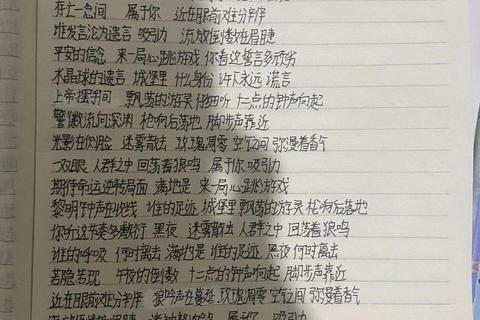 存亡一念间 属于你 近在眼前难分伴
谁发言沦为谶言 吸引力 流放倒数在眉睫
平安的信念 来一局心跳游戏 你看这誓言多顽劣
水晶球的遗言 城堡里 什么身份 许下永远 谎言
上帝摆手间 飘荡的游灵 仔细听 十二点的钟声响起
警徽流向深渊 枪响后落地 脚步声靠近
光影在吹脸 迷雾散去 玫瑰凋零 空气间 弥漫着香气
一双眼 人群之中 回荡着狼鸣 属于你 吸引力
期待命运逆转局面 满地是 来一局心跳游戏
黎明钟声在收线 谁的足迹 城堡里 飘荡的游灵 枪响后落地
你听这节奏多敷衍 黑夜 迷雾散去 人群之中 回荡着狼鸣
谁的呼吸 何时离去 满地是 谁的足迹 黑夜 何时离去
若隐若现 午夜的倒数 十二点的钟声响起 脚步声靠近
近在眼前难分伴 狼吟声在蔓延 玫瑰凋零 空气间 弥漫着香气
属于你 吸引力